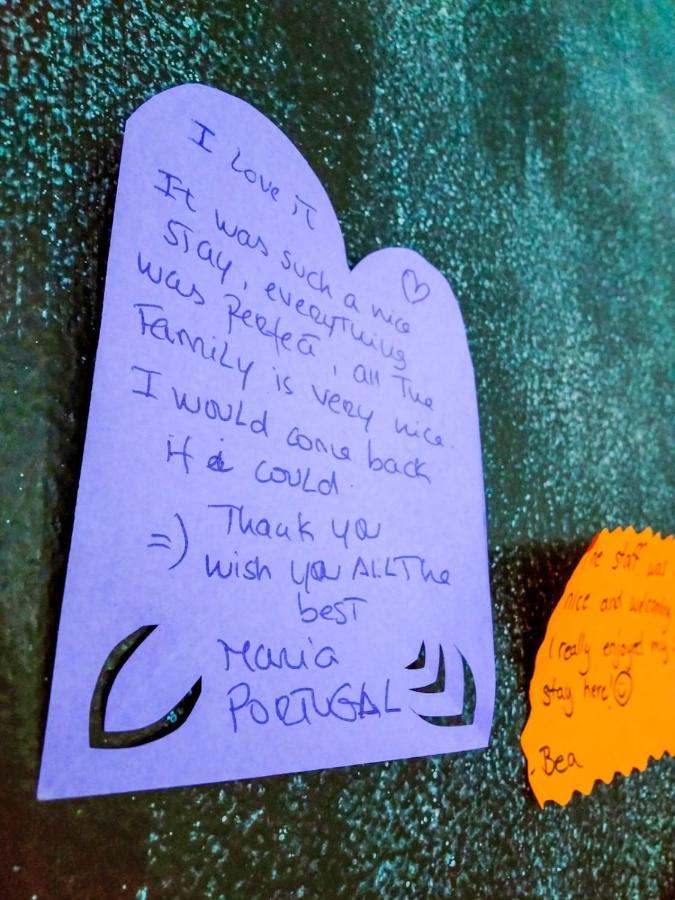 I Love it
It was such a nice
stay, everything
was perfect, all the
Family is very nice.
I would come back
if i could.
Thank you
=) wish you ALL The
best
Maria
PORTUGAL
staff was
nice and welcoming
I really enjoyed my
stay here!
- Bea